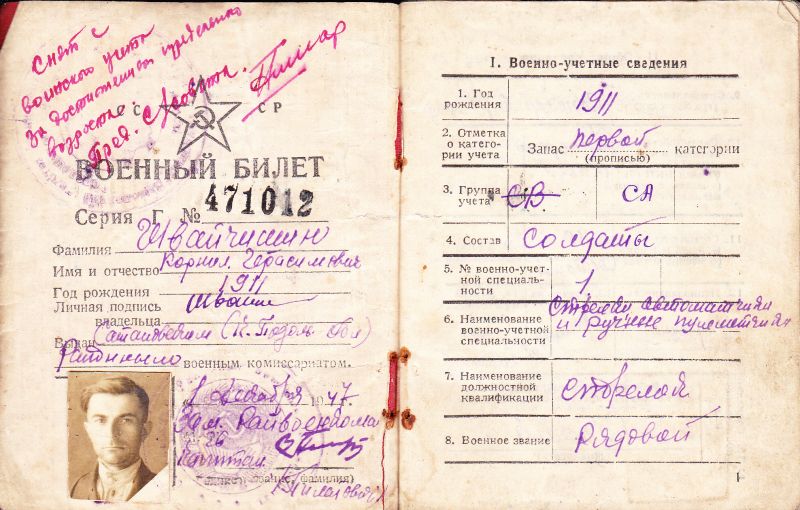 Снят с
воинского учета
за достижением предельного
возраста.
Пред. С/совета.
СССР
ВОЕННЫЙ БИЛЕТ
Серия Г № 471012
Фамилия Швайчишин
Имя и отчество Корнил Герасимович
Год рождения 1911
Личная подпись
владельца
Выдан
военным комиссариатом.
1 декабря 1947
Зам. Райвоенкома
Капитан
I. Военно-учетные сведения
1. Год рождения 1911
2. Отметка о категории учета Запас первой категории
(прописью)
3. Группа учета СВ СА
4. Состав солдаты
5. № военно-учетной специальности 1
6. Наименование военно-учетной специальности стрелки автоматчики
и ручные пулеметчики
7. Наименование должностной квалификации стрелок
8. Военное звание рядовой